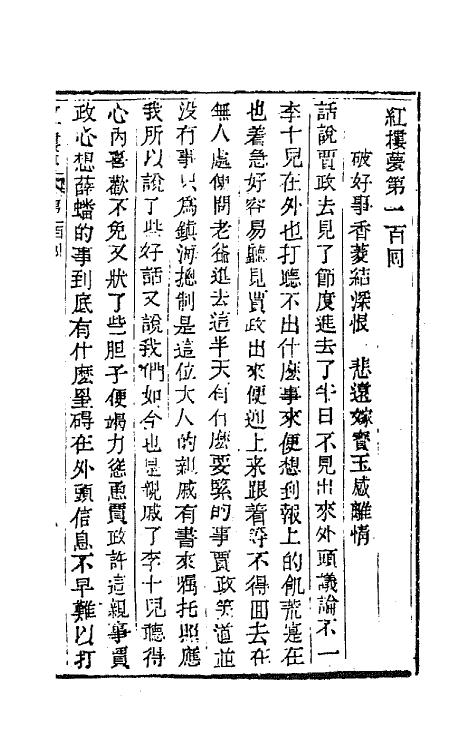 紅樓夢第一百回
破好事香菱結深恨　悲遠嫁寶玉感離情
話說賈政去見了節度進去了半日不見出來外頭議論不一
李十兒在外也打聽不出什麼事來便想到報上的飢荒寔在
也着急好容易聽見賈政出來便迎上来跟着等不得回去在
無人處便問老爺進去這半天有什麼要緊的事賈政笑道並
没有事只為鎮海總制是這位大人的親戚有書來嘱托照應
我所以說了些好話又說我們如今也是親戚了李十兒聽得
心內喜歡不免又壯了些胆子便竭力慫恿賈政許這親事賈
政心想薛蟠的事到底有什麼罣碍在外頭信息不早難以打